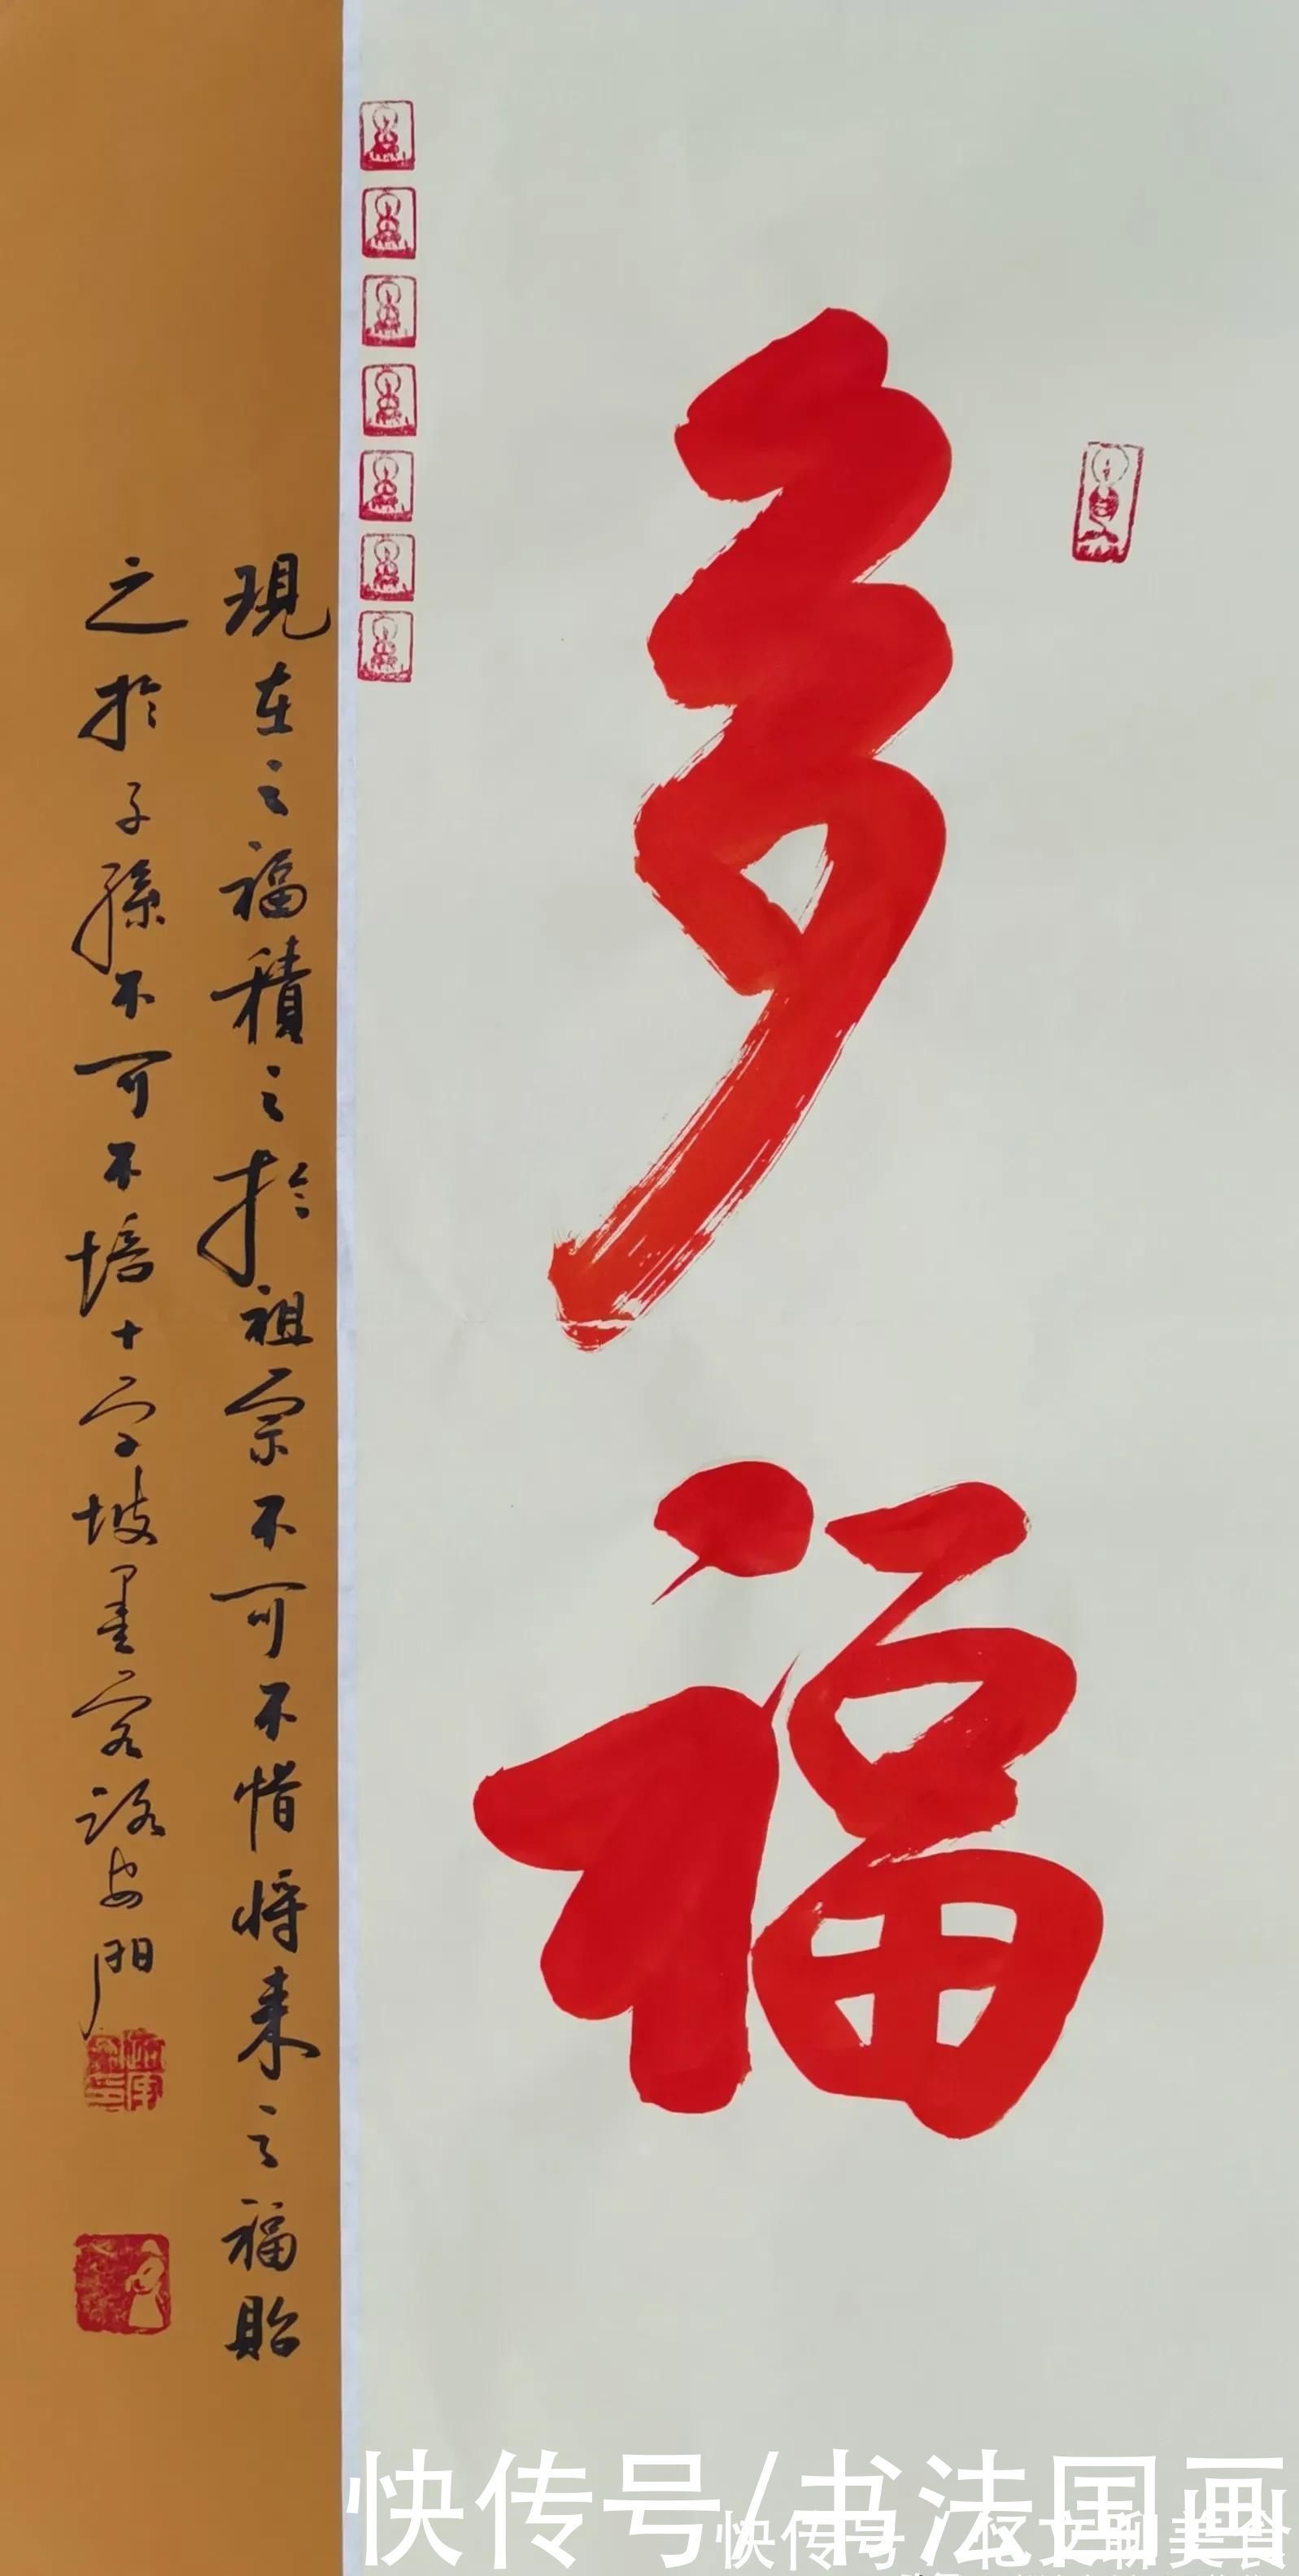 多福
現在之福積之於祖宗不可不惜将来之福貽
之於子孫不可不培十字坡墨客路安門
快传号/书法国画
快传号